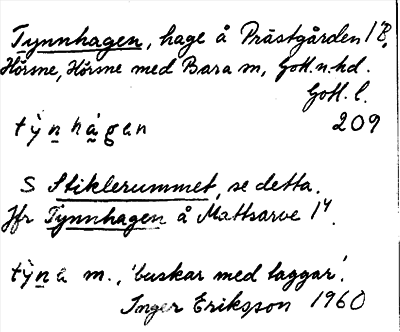 Tynnhagen, hage å Prästgården 1B,
Hörsne, Hörsne med Bara sn, Gotl. n. hd.
Gotl. l.
tỳn hágen 209
S Stiklerummet, se detta.
Jfr Tynnhagen å Mattsarve 1⁴.
tỳna m., 'buskar med taggar'.
Inger Eriksson 1960